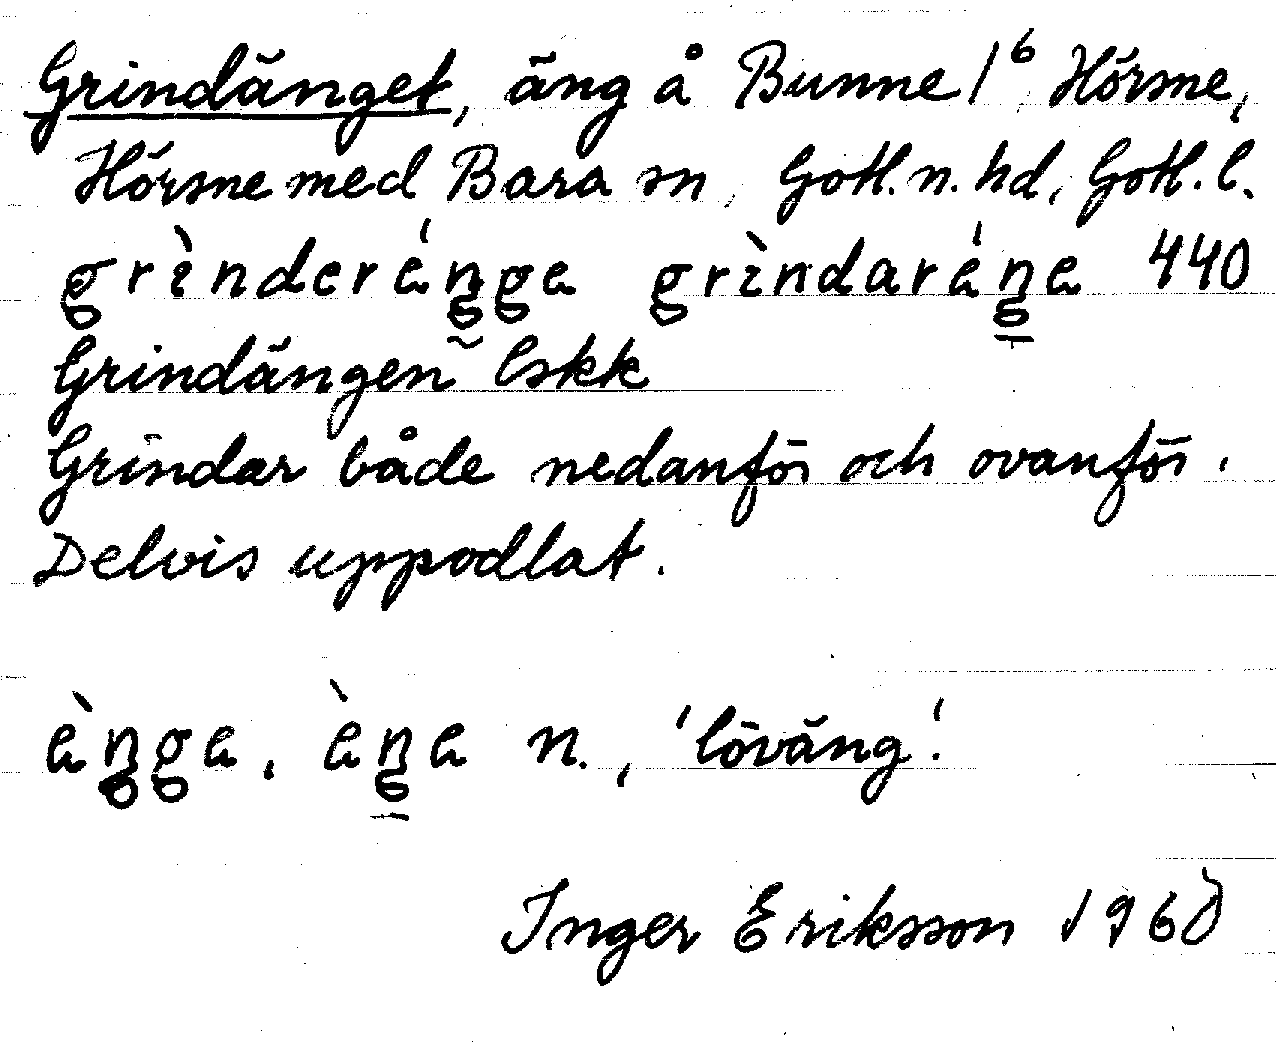 Grindänget, äng å Bunne 1⁶ Hörsne,
Hörsne med Bara sn, Gotl. n. hd, Gotl. l.
grìnderáŋga grìndaráŋa 440
Grindängen lskk
Grindar både nedanför och ovanför.
Delvis uppodlat.
àŋga, àŋa n., 'löväng'.
Inger Eriksson 1960